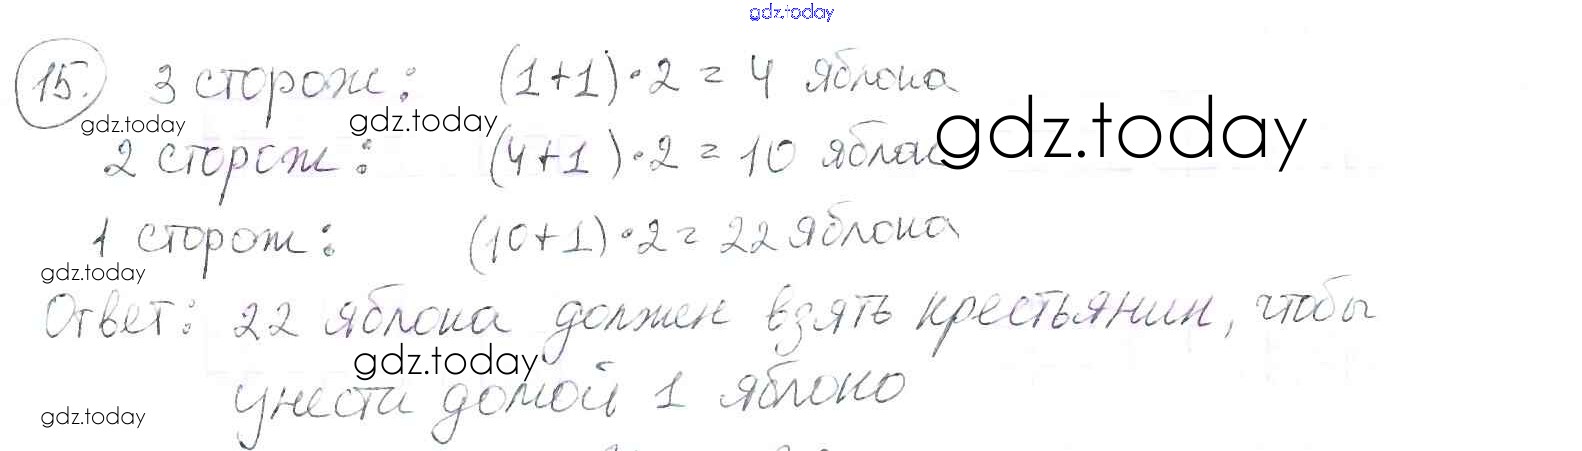 gdz.today
15. 3 сторож: (1+1)·2 = 4 яблока
gdz.today gdz.today gdz.today
2 сторож: (4+1)·2 = 10
1 сторож: (10+1)·2 = 22 яблока
gdz.today
Ответ: 22 яблока должен взять крестьянин, чтобы
gdz.today
унести домой 1 яблоко
gdz.today